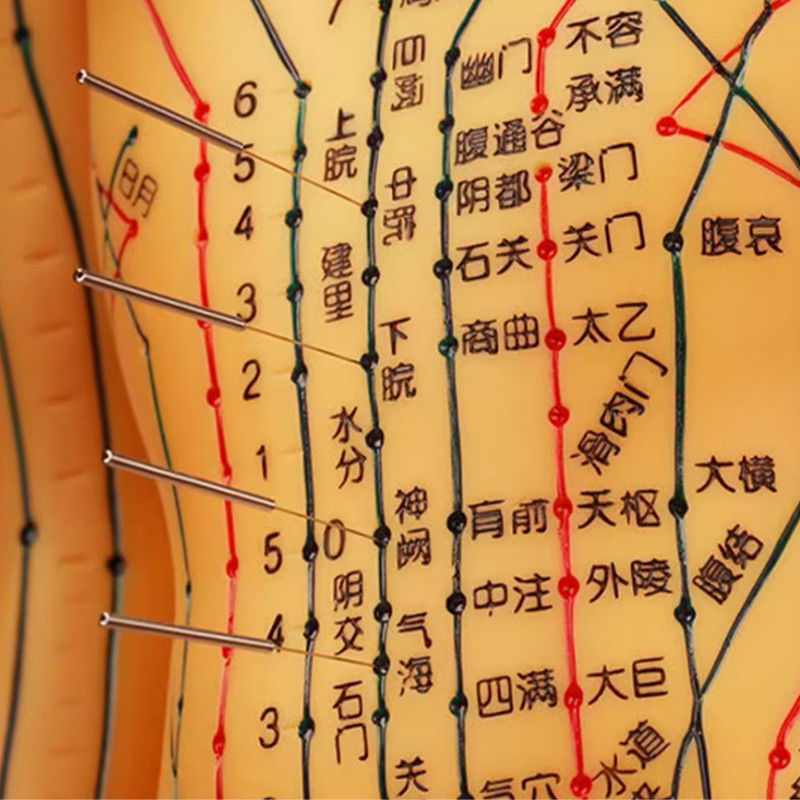 7
巨阙
幽门
不容
承满
6
上脘
腹通谷
5
中脘
阴都
梁门
日月
4
建里
石关
关门
腹哀
3
下脘
商曲
太乙
2
滑肉门
水分
1
大横
神阙
肓俞
天枢
0
5
腹结
阴交
中注
外陵
4
气海
四满
大巨
石门
3
关
气穴
水道